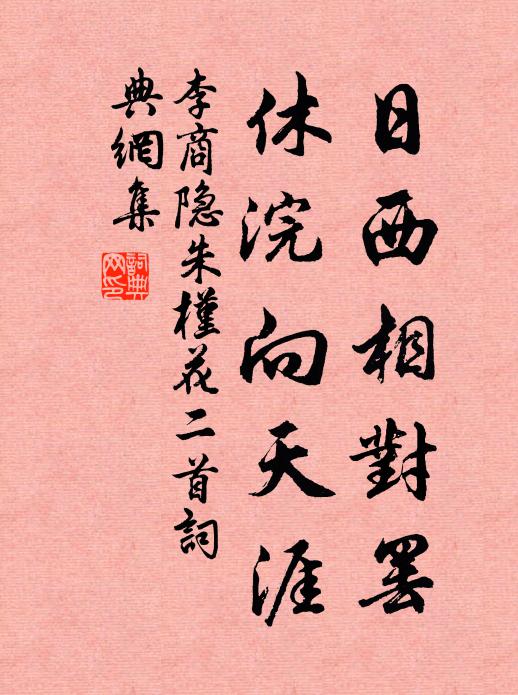 日西相對罷
休浣向天涯
李商隐朱槿花二首詞
典網集
詞典
网印